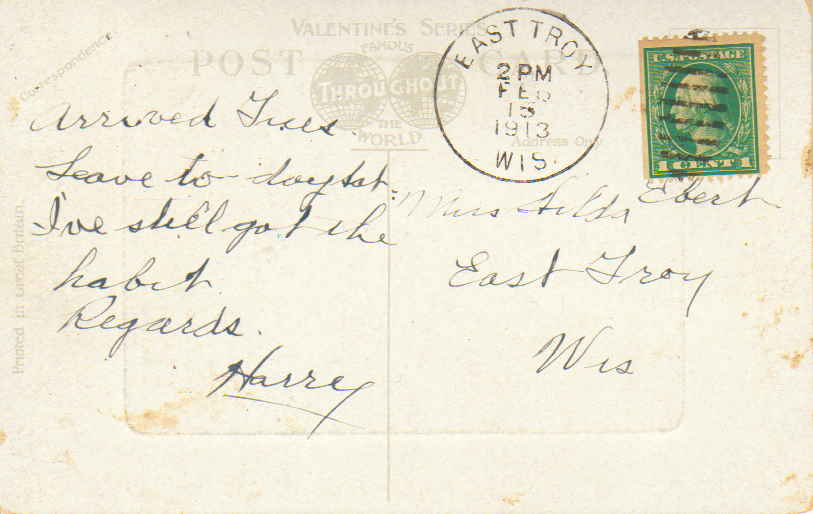 VALENTINE'S SERIES
POST CARD
FAMOUS
THROUGHOUT
THE
WORLD
Correspondence.
Address Only
Printed in Great Britain.
EAST TROY
2 PM
FEB
15
1913
WIS.
U.S. POSTAGE
1 CENT 1
Arrived Tues
Leave to-day Sat-
I've still got the
habit
Regards.
Harry
Miss Hilda Ebert
East Troy
Wis